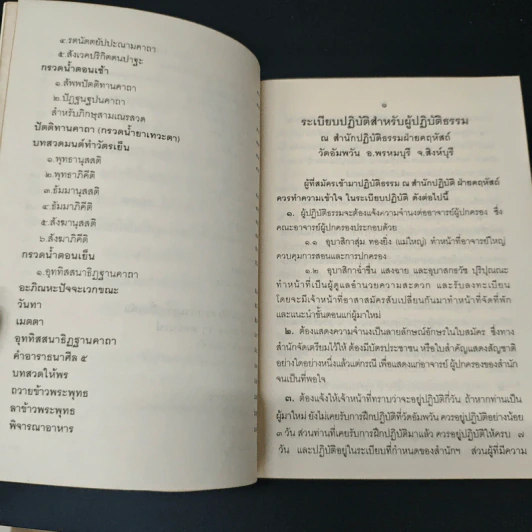 ๔.รตนัตตยัปปะณามคาถา
๕.สังเวคปริกิตตนปาฐะ
กรวดน้ำตอนเช้า
๑.สัพพปัตติทานคาถา
๒.ปัฏฐนฐปนคาถา
สำหรับภิกษุสามเณรสวด
ปัตติทานคาถา (กรวดน้ำยาเทวะตา)
บทสวดมนต์ทำวัตรเย็น
๑.พุทธานุสสติ
๒.พุทธาภิคีติ
๓.ธัมมานุสสติ
๔.ธัมมาภิคีติ
๕.สังฆานุสสติ
๖.สังฆาภิคีติ
กรวดน้ำตอนเย็น
๑.อุททิสสนาธิฏฐานคาถา
อะภิณหะปัจจะเวกขณะ
วันทา
เมตตา
อุททิสสนาธิฏฐานคาถา
คำอาราธนาศีล ๕
บทสวดให้พร
ถวายข้าวพระพุทธ
ลาข้าวพระพุทธ
พิจารณาอาหาร
๑
ระเบียบปฏิบัติสำหรับผู้ปฏิบัติธรรม
ณ สำนักปฏิบัติธรรมฝ่ายคฤหัสถ์
วัดอัมพวัน อ.พรหมบุรี จ.สิงห์บุรี
ผู้ที่สมัครเข้ามาปฏิบัติธรรม ณ สำนักปฏิบัติ ฝ่ายคฤหัสถ์
ควรทำความเข้าใจ ในระเบียบปฏิบัติ ดังต่อไปนี้
๑. ผู้ปฏิบัติธรรมจะต้องแจ้งความจำนงต่ออาจารย์ผู้ปกครอง ซึ่ง
คณะอาจารย์ผู้ปกครองประกอบด้วย
๑.๑ อุบาสิกาสุ่ม ทองยิ่ง (แม่ใหญ่) ทำหน้าที่อาจารย์ใหญ่
ควบคุมการสอนและการปกครอง
๑.๒ อุบาสิกาฉ่ำชื่น แสงฉาย และอุบาสกอวัช ปุริปุณณะ
ทำหน้าที่เป็นผู้ดูแลอำนวยความสะดวก และรับลงทะเบียน
โดยจะมีเจ้าหน้าที่อาสาสมัครสับเปลี่ยนกันมาทำหน้าที่จัดที่พัก
และแนะนำขั้นตอนแก่ผู้มาใหม่
๒. ต้องแสดงความจำนงเป็นลายลักษณ์อักษรในใบสมัคร ซึ่งทาง
สำนักจัดเตรียมไว้ให้ ต้องมีบัตรประชาชน หรือใบสำคัญแสดงสัญชาติ
อย่างใดอย่างหนึ่งแล้วแต่กรณี เพื่อแสดงแก่อาจารย์ ผู้ปกครองของสำนัก
จนเป็นที่พอใจ
๓. ต้องแจ้งให้เจ้าหน้าที่ทราบว่าจะอยู่ปฏิบัติกี่วัน ถ้าหากท่านเป็น
ผู้มาใหม่ ยังไม่เคยรับการฝึกปฏิบัติที่วัดอัมพวัน ควรอยู่ปฏิบัติอย่างน้อย
๓ วัน ส่วนท่านที่เคยรับการฝึกปฏิบัติมาแล้ว ควรอยู่ปฏิบัติให้ครบ ๗
วัน และปฏิบัติอยู่ในระเบียบที่กำหนดของสำนักฯ ส่วนผู้ที่มีความ